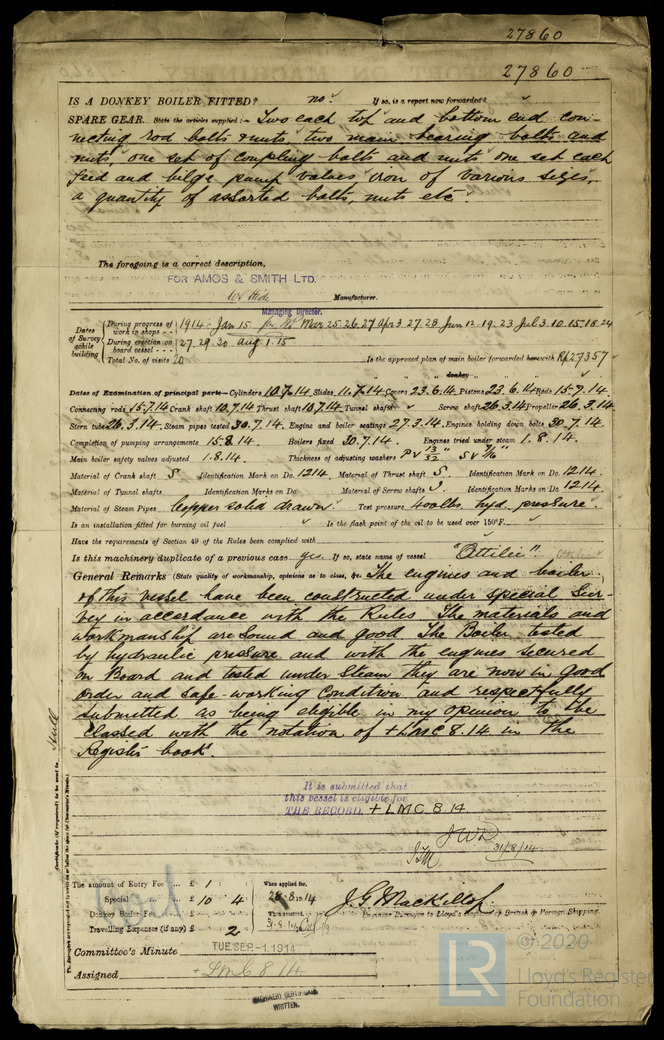 27860
27860
IS A DONKEY BOILER FITTED? no. If so, is a report now forwarded?
SPARE GEAR. State the articles supplied:— Two each top and bottom end con-
necting rod bolts & nuts, two main bearing bolts and
nuts, one set of coupling bolts and nuts one set each
feed and bilge pump valves, iron of various sizes,
a quantity of assorted bolts, nuts etc.
The foregoing is a correct description,
FOR AMOS & SMITH LTD.
Manufacturer.
Managing Director.
Dates of Survey while building
During progress of work in shops - - 1914: Jan 15 Mar 25. 26. 27 Apr 3. 27. 28 Jun 12. 19. 23 Jul 3. 10. 15. 18. 24
During erection on board vessel - - 27. 29. 30 Aug 1. 15
Total No. of visits 20 Is the approved plan of main boiler forwarded herewith Rpt 27357
" " " donkey " " "
Dates of Examination of principal parts—Cylinders 10.7.14 Slides 11.7.14 Covers 23.6.14 Pistons 23.6.14 Rods 15.7.14
Connecting rods 15.7.14 Crank shaft 10.7.14 Thrust shaft 10.7.14 Tunnel shafts Screw shaft 26.3.14 Propeller 26.3.14
Stern tube 26.3.14 Steam pipes tested 30.7.14 Engine and boiler seatings 27.3.14 Engines holding down bolts 30.7.14
Completion of pumping arrangements 15.8.14 Boilers fixed 30.7.14 Engines tried under steam 1.8.14
Main boiler safety valves adjusted 1.8.14 Thickness of adjusting washers P V 13/32" S V 7/16"
Material of Crank shaft S Identification Mark on Do. 1214 Material of Thrust shaft S Identification Mark on Do. 1214
Material of Tunnel shafts Identification Marks on Do Material of Screw shafts Identification Marks on Do. 1214
Material of Steam Pipes Copper solid drawn Test pressure 400 lbs. hyd. pressure.
Is an installation fitted for burning oil fuel Is the flash point of the oil to be used over 150°F.
Have the requirements of Section 49 of the Rules been complied with
Is this machinery duplicate of a previous case yes If so, state name of vessel "Ottilie"
General Remarks (State quality of workmanship, opinions as to class, &c. The engines and boiler
of this vessel have been constructed under special Sur-
vey in accordance with the Rules The materials and
workmanship are sound and good The Boiler tested
by hydraulic pressure and with the engines secured
on Board and tested under steam they are now in good
order and safe working condition and respectfully
submitted as being eligible in my opinion to be
classed with the notation of + LMC 8.14 in the
Register book.
It is submitted that
this vessel is eligible for
THE RECORD. + LMC 8.14
31/8/14
Hull
The amount of Entry Fee .. £ 1 : : When applied for,
Special .. £ 10 : 4 : 28.8.1914
Donkey Boiler Fee .. £ : : When received,
Travelling Expenses (if any) £ : 2 :
J G Mackillop
Engineer Surveyor to Lloyd's Register of British & Foreign Shipping.
Committee's Minute TUE. SEP - 1. 1914
Assigned + LMC 8 14
MACHINERY CERTIFICATE
WRITTEN.
LR
© 2020
Lloyd's Register
Foundation